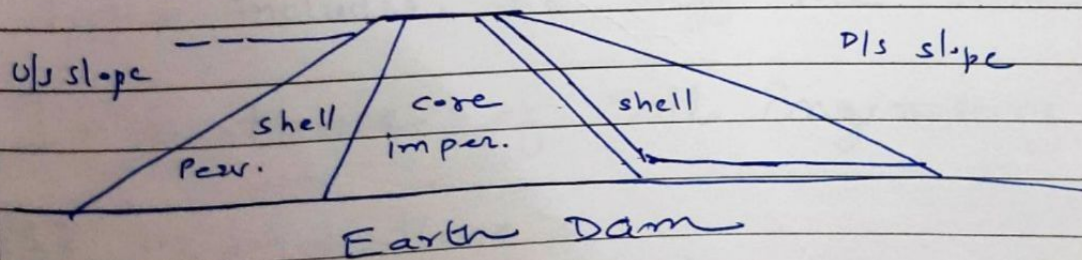 U/s slope
D/s slope
shell
Perv.
core
imper.
shell
Earth Dam